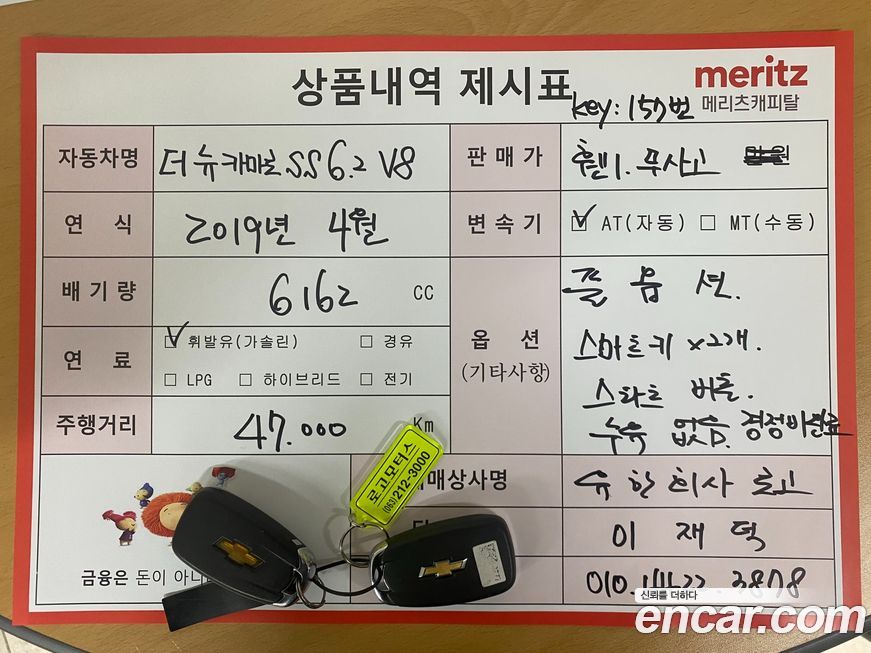 상품내역 제시표
meritz
메리츠캐피탈
key: 157번
자동차명 더 뉴 카마로 SS 6.2 V8
판매가 휀1. 무사고 만원
연 식 2019년 4월
변속기 AT(자동) MT(수동)
배기량 6162 CC
옵 션
(기타사항)
풀 옵 션.
스마트키 x2개.
스타트 버튼.
누유 없음. 경정비완료
연 료 휘발유(가솔린) 경유
LPG 하이브리드 전기
주행거리 47.000 Km
로고모터스
(063)212-3000
매매상사명 유한회사 로고
이 재 덕
금융은 돈이 아니
010. 3878
신뢰를 더하다
encar.com